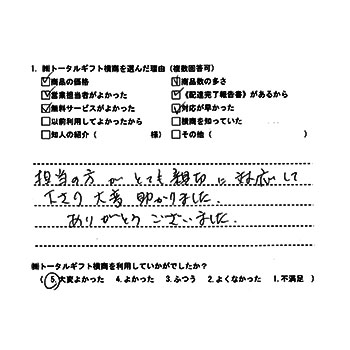 1. ㈱トータルギフト横商を選んだ理由（複数回答可）
☑商品の価格 ☑商品数の多さ
☑営業担当者がよかった ☑《配達完了報告書》があるから
☑無料サービスがよかった ☑対応が早かった
□以前利用してよかったから □横商を知っていた
□知人の紹介（ 様） □その他（ ）
担当の方がとても親切に対応して
下さり大変助かりました。
ありがとうございました。
㈱トータルギフト横商を利用していかがでしたか？
（ 5.大変よかった 4.よかった 3.ふつう 2.よくなかった 1.不満足 ）